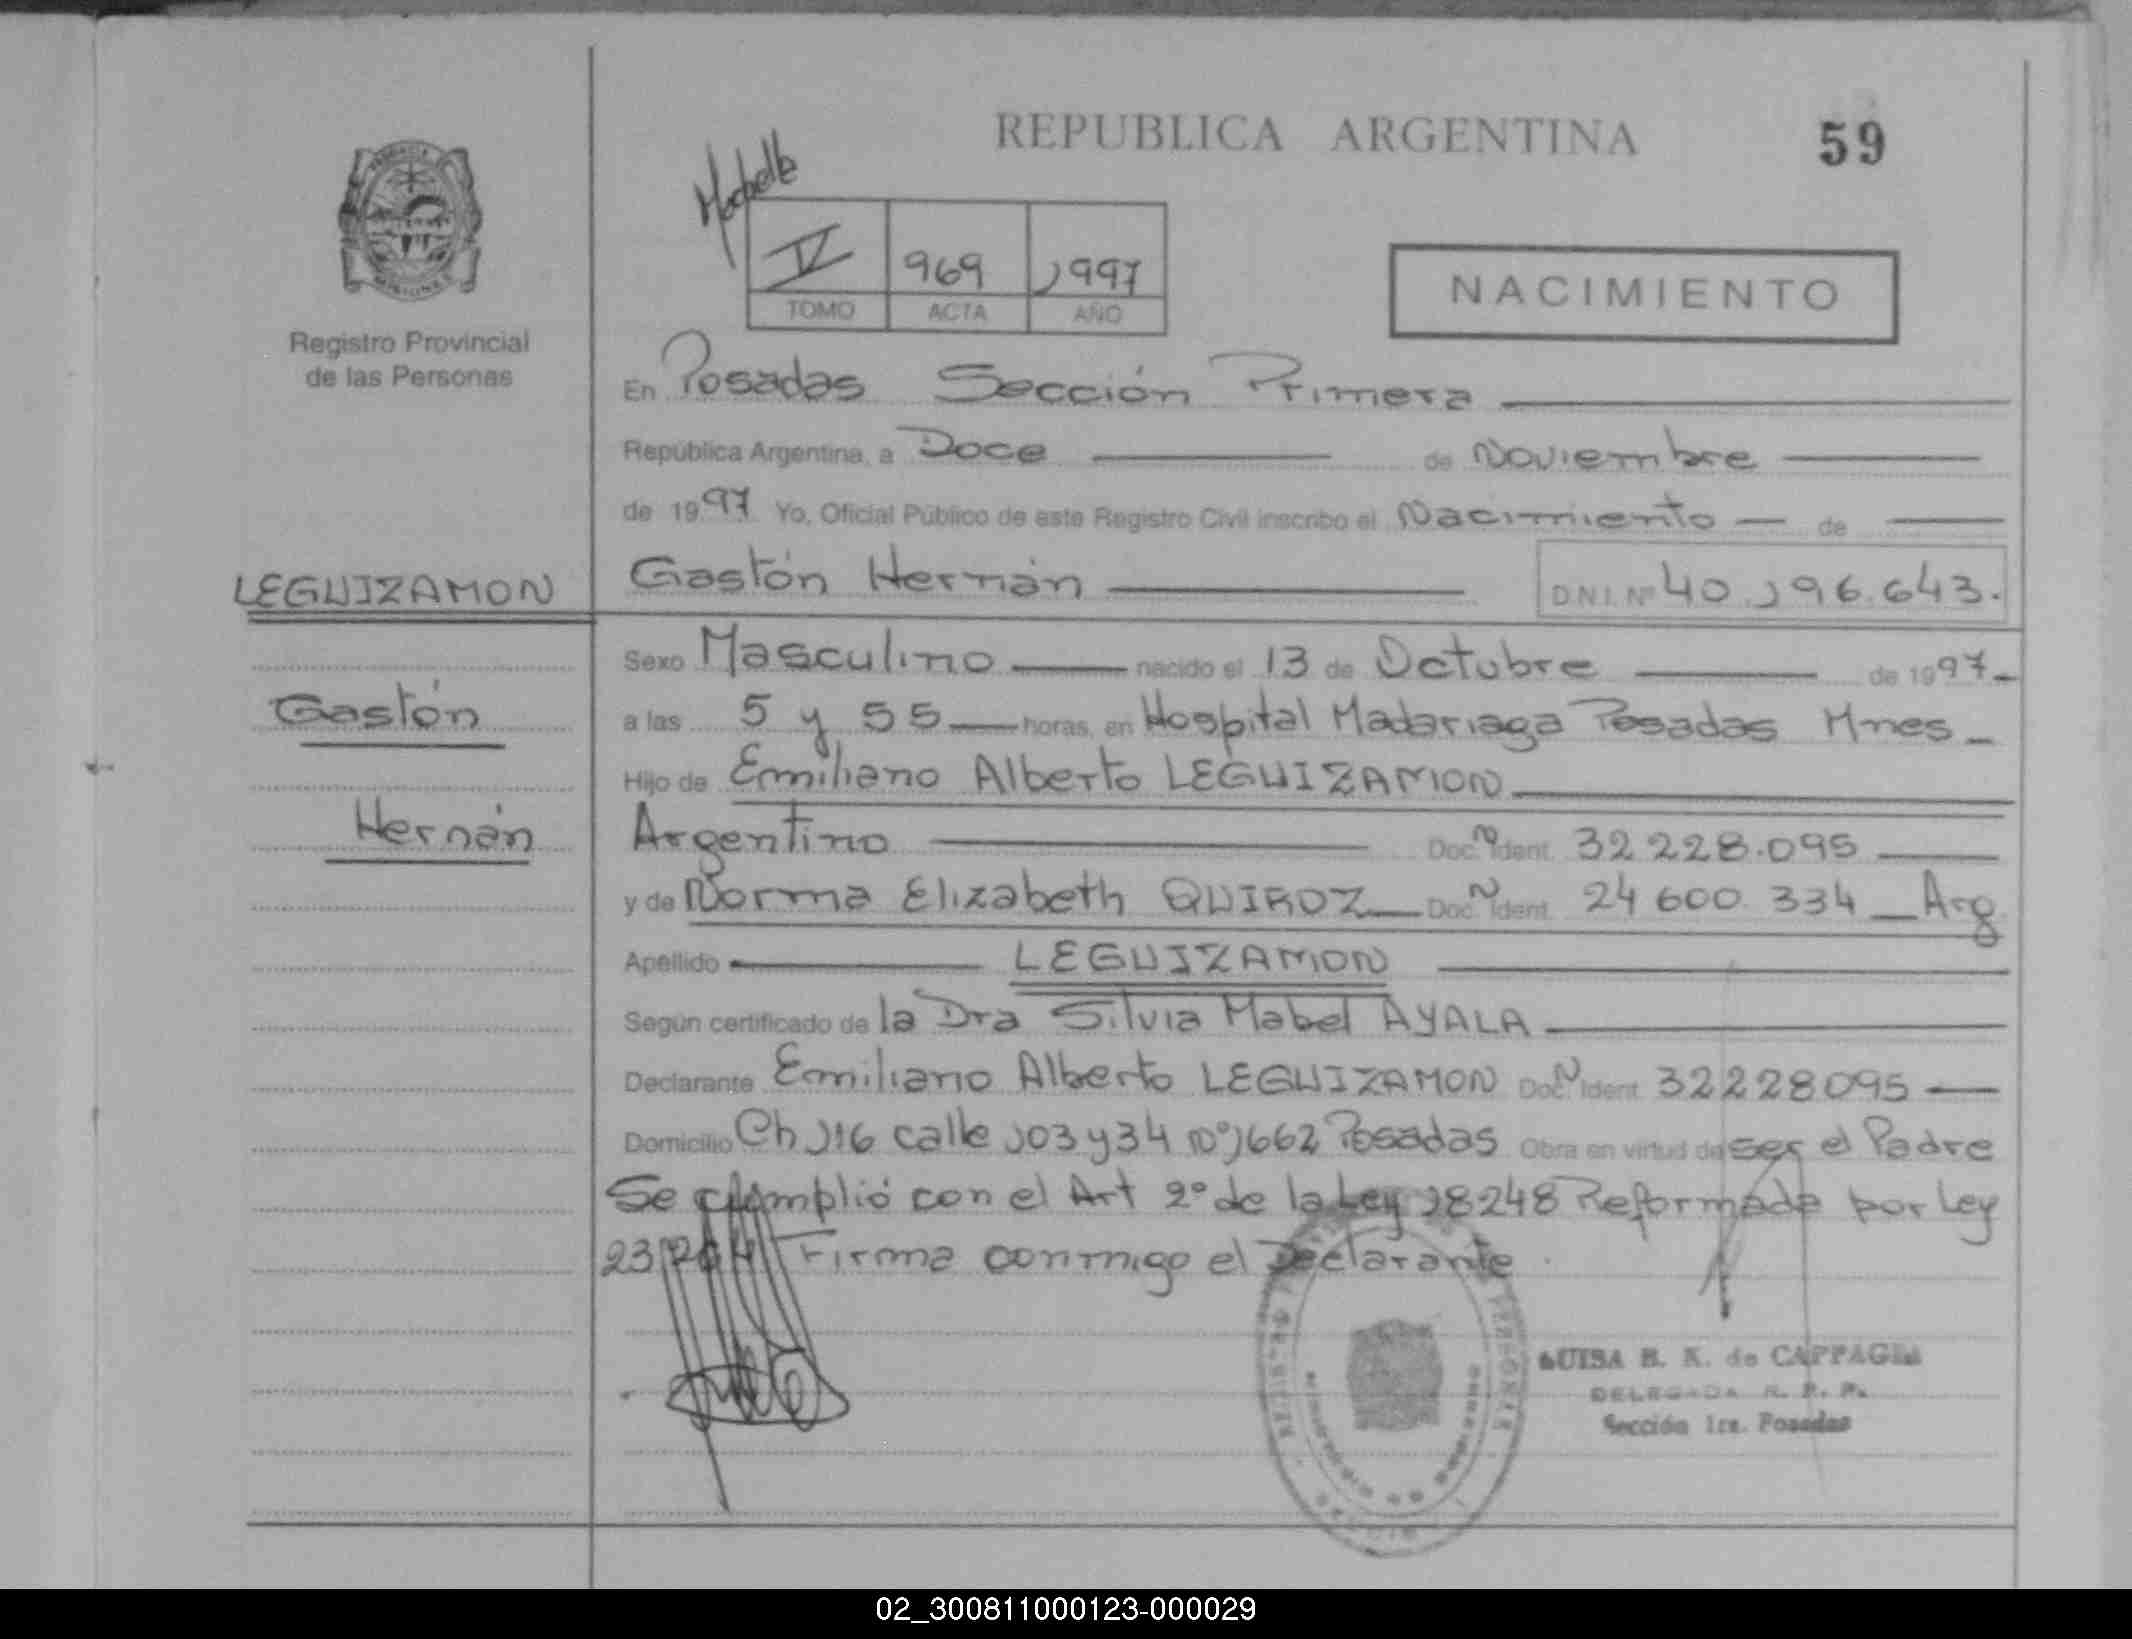 REPUBLICA ARGENTINA
59
V 969 1997
TOMO ACTA AÑO
NACIMIENTO
Registro Provincial
de las Personas
En Posadas Sección Primera
República Argentina, a Doce de Noviembre
de 1997 Yo, Oficial Público de este Registro Civil inscribo el Nacimiento de
LEGUIZAMON Gastón Hernán D.N.I. Nº 40.196.643.
Sexo Masculino nacido el 13 de Octubre de 1997
Gastón
a las 5 y 55 horas, en Hospital Madariaga Posadas Mnes
Hijo de Emiliano Alberto LEGUIZAMON
Hernán
Argentino Doc. N Ident. 32 228.095
y de Norma Elizabeth QUIROZ Doc. N Ident. 24 600 334 Arg
Apellido LEGUIZAMON
Según certificado de la Dra Silvia Mabel AYALA
Declarante Emiliano Alberto LEGUIZAMON Doc. N Ident. 32228095
Domicilio Ch 116 calle 103 y 34 Nº 1662 Posadas Obra en virtud de ser el Padre
Se cumplió con el Art 2º de la Ley 18248 Reformada por Ley
Firma conmigo el Declarante
LUISA B. K. de CAPPAGLI
DELEGADA R. P. P.
Sección 1ra. Posadas
02_300811000123-000029